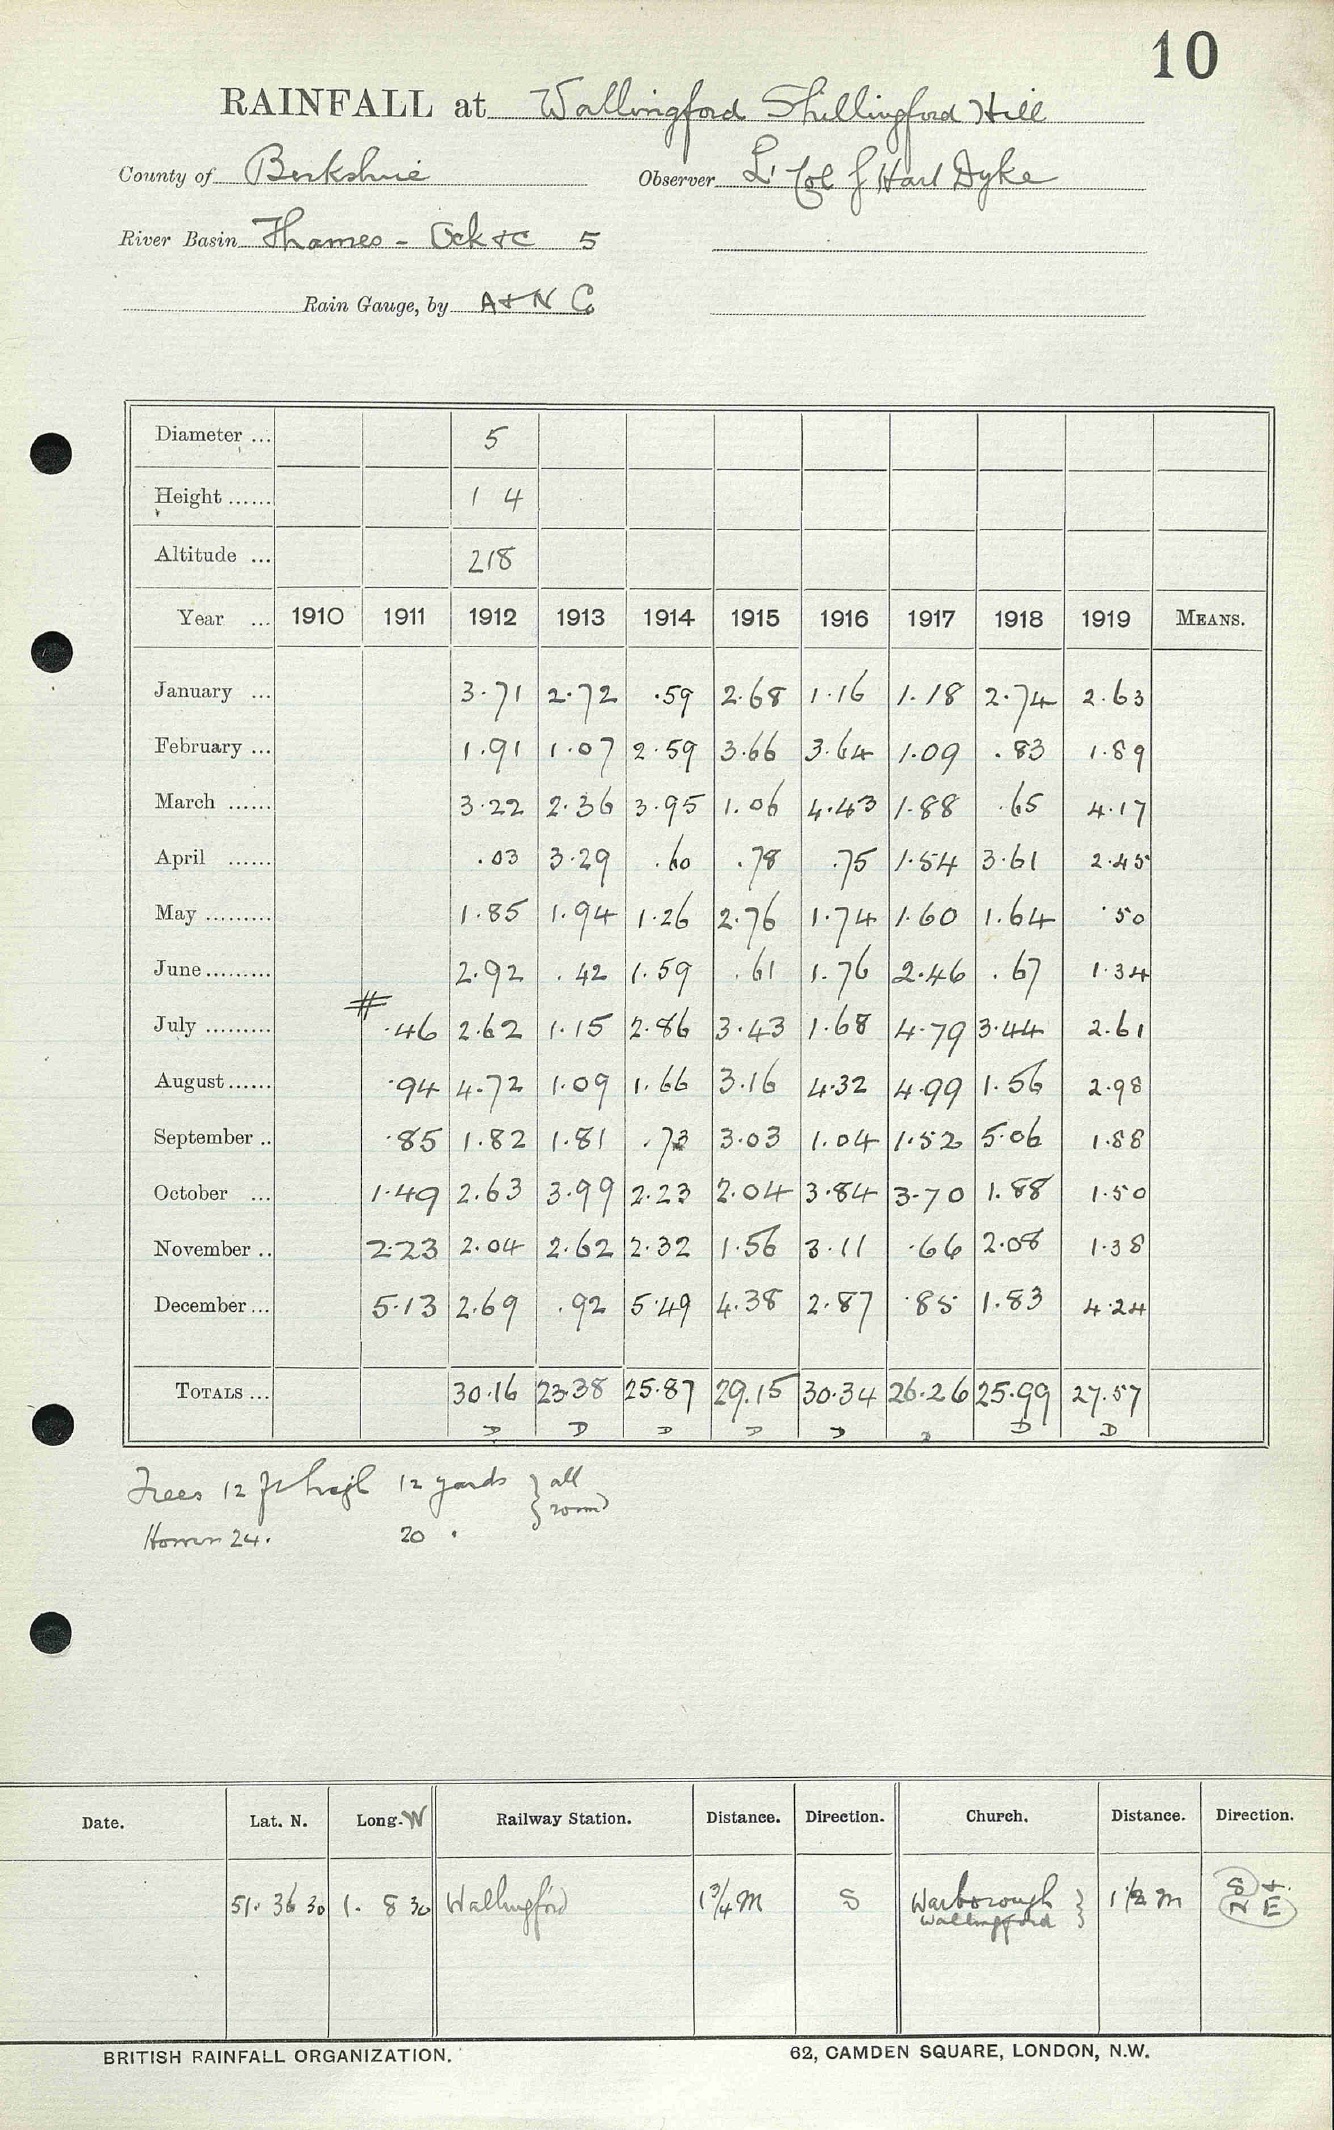 10
RAINFALL at Wallingford Shillingford Hill
County of Berkshire Observer Lt Col J Hart Dyke
River Basin Thames - Ock &c 5
Rain Gauge, by A & N Co
Diameter ... 5
Height ...... 1 4
Altitude ... 218
Year ... 1910 1911 1912 1913 1914 1915 1916 1917 1918 1919 MEANS.
January ... 3.71 2.72 .59 2.68 1.16 1.18 2.74 2.63
February ... 1.91 1.07 2.59 3.66 3.64 1.09 .83 1.89
March ...... 3.22 2.36 3.95 1.06 4.43 1.88 .65 4.17
April ...... .03 3.29 .60 .78 .75 1.54 3.61 2.45
May ......... 1.85 1.94 1.26 2.76 1.74 1.60 1.64 .50
June ......... 2.92 .42 1.59 .61 1.76 2.46 .67 1.34
July ......... # .46 2.62 1.15 2.86 3.43 1.68 4.79 3.44 2.61
August ...... .94 4.72 1.09 1.66 3.16 4.32 4.99 1.56 2.98
September .. .85 1.82 1.81 .73 3.03 1.04 1.52 5.06 1.88
October ... 1.49 2.63 3.99 2.23 2.04 3.84 3.70 1.88 1.50
November .. 2.23 2.04 2.62 2.32 1.56 3.11 .66 2.08 1.38
December ... 5.13 2.69 .92 5.49 4.38 2.87 .85 1.83 4.24
TOTALS ... 30.16 23.38 25.87 29.15 30.34 26.26 25.99 27.57
D D D D D D D D
Trees 12 ft high 12 yards } all
24. 20 . } round
Date. Lat. N. Long. W Railway Station. Distance. Direction. Church. Distance. Direction.
51. 36 30 1. 8 30 Wallingford 1 3/4 M S Warborough } 1 1/2 M S &
Wallingford N E
BRITISH RAINFALL ORGANIZATION. 62, CAMDEN SQUARE, LONDON, N.W.